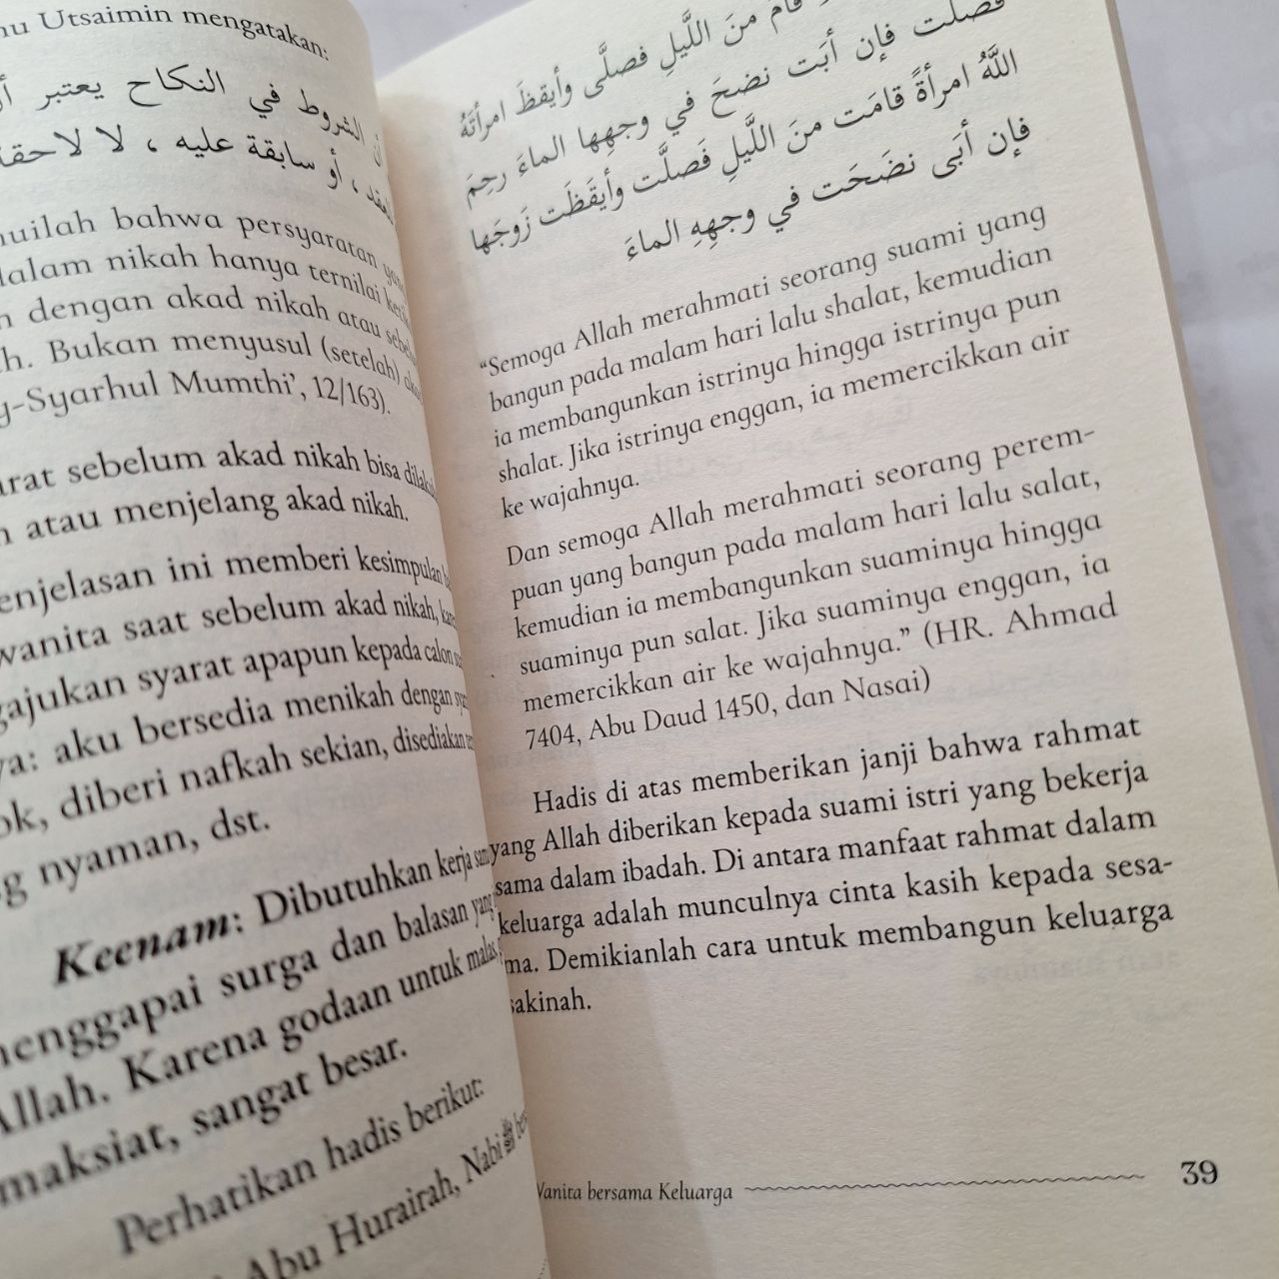 Utsaimin mengatakan:
الشروط في النكاح يعتبر
، أو سابقة عليه ، لا لاحقة
bahwa persyaratan
dalam nikah hanya ternilai
dengan akad nikah atau
Bukan menyusul (setelah)
Mumthi', 12/163).
sebelum akad nikah bisa
atau menjelang akad nikah.
ini memberi kesimpulan
wanita saat sebelum akad nikah,
syarat apapun kepada calon
aku bersedia menikah dengan
diberi nafkah sekian, disediakan
nyaman, dst.
Keenam: Dibutuhkan kerja
menggapai surga dan balasan
Allah. Karena godaan untuk malas
maksiat, sangat besar.
Perhatikan hadis berikut:
Abu Hurairah, Nabi ﷺ
قام منَ اللَّيلِ فصلَّى وأيقظَ امرأتَهُ
فصلَّت فإن أبَت نضحَ في وجهِها الماءَ رحِمَ
اللَّهُ امرأةً قامَت منَ اللَّيلِ فَصلَّت وأيقَظَت زَوجَها
فإن أبَى نضَحَت في وجهِهِ الماءَ
"Semoga Allah merahmati seorang suami yang
bangun pada malam hari lalu shalat, kemudian
ia membangunkan istrinya hingga istrinya pun
shalat. Jika istrinya enggan, ia memercikkan air
ke wajahnya.
Dan semoga Allah merahmati seorang perem-
puan yang bangun pada malam hari lalu salat,
kemudian ia membangunkan suaminya hingga
suaminya pun salat. Jika suaminya enggan, ia
memercikkan air ke wajahnya." (HR. Ahmad
7404, Abu Daud 1450, dan Nasai)
Hadis di atas memberikan janji bahwa rahmat
yang Allah diberikan kepada suami istri yang bekerja
sama dalam ibadah. Di antara manfaat rahmat dalam
keluarga adalah munculnya cinta kasih kepada sesa-
ma. Demikianlah cara untuk membangun keluarga
sakinah.
Wanita bersama Keluarga 39